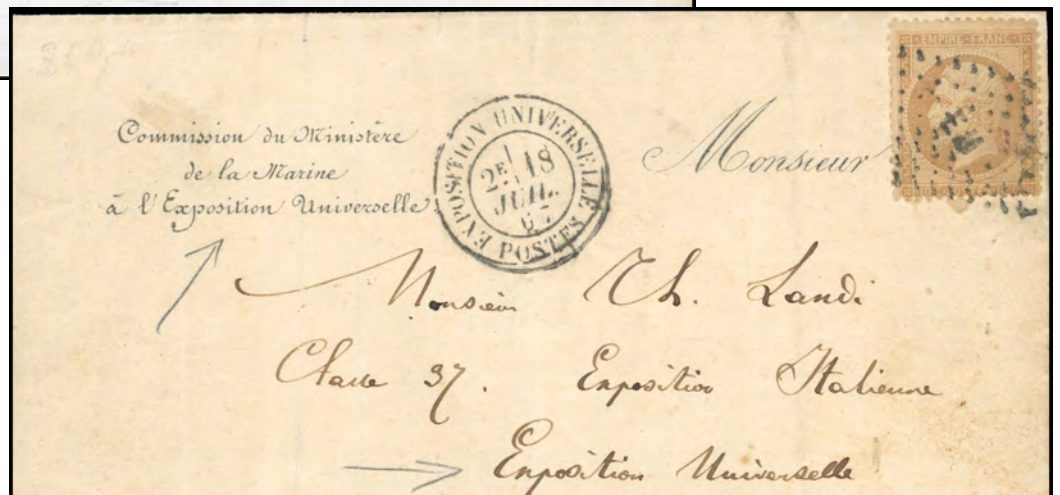 EMPIRE FRANC
Commission du Ministère
de la Marine
à l'Exposition Universelle
EXPOSITION UNIVERSELLE
2E 18
JUIL.
67
POSTES
Monsieur
Monsieur Th. Landi
Classe 37. Exposition Italienne
Exposition Universelle